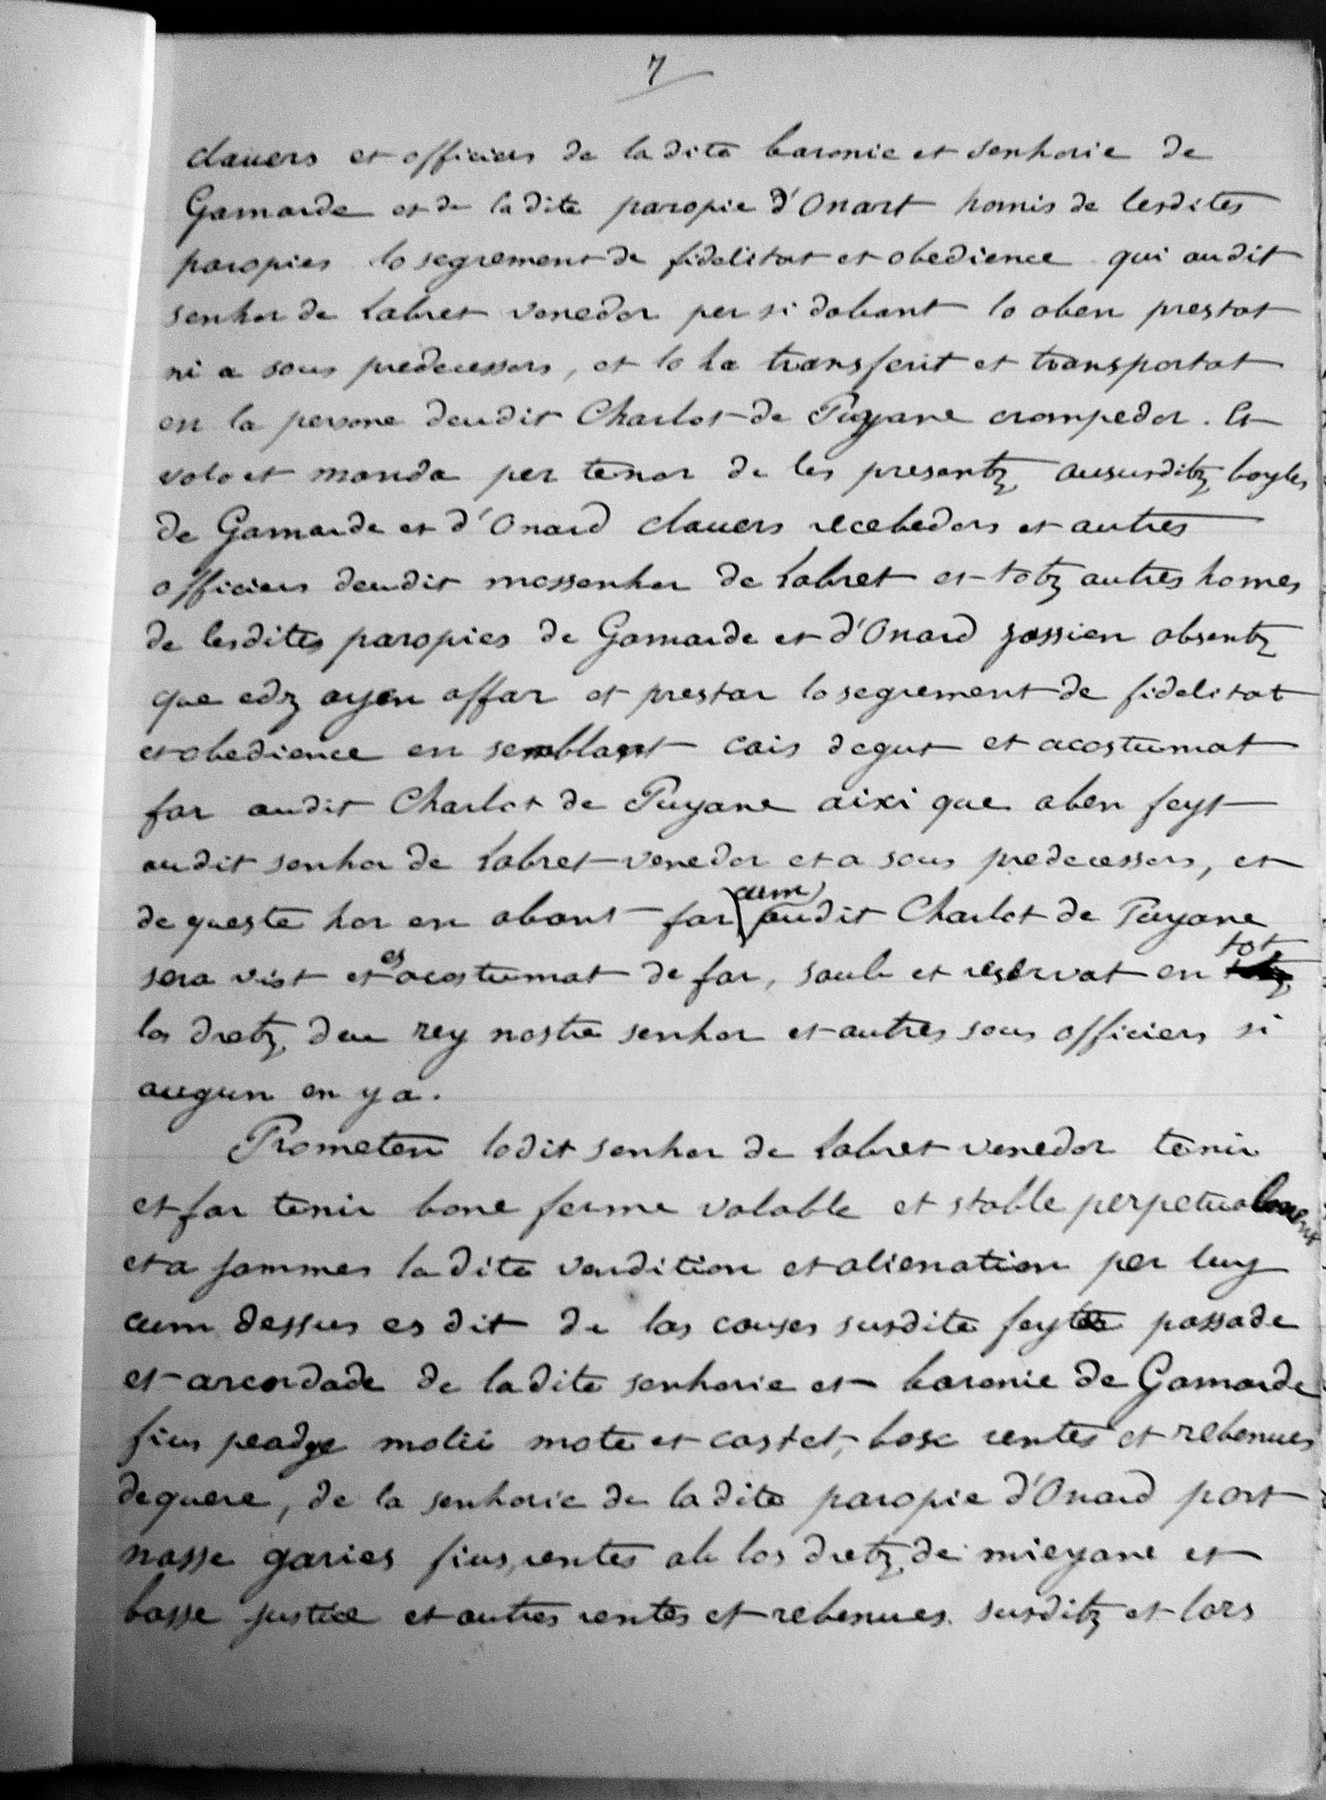 7
clauers et officiers de la dite baronie et senhorie de
Gamarde et de la dite paropie d'Onart homis de lesdites
paropies lo segrement de fidelitat et obedience qui audit
senhor de Labret venedor per si dabant lo aben prestat
ni a sous predecessors, et lo ha transferit et transportat
en la persone deudit Charlot de Puyane crompedor. Et
volo et manda per tenor de les presentz aususditz bayles
de Gamarde et d'Onard clauers recebedors et autres
officiers deudit mossenhor de Labret et totz autres homes
de lesdites paropies de Gamarde et d'Onard jassien absentz
que edz ayen affar et prestar lo segrement de fidelitat
et obedience en semblant cais degut et acostumat
far audit Charlot de Puyane aixi que aben feyt
audit senhor de Labret venedor et a sous predecessors, et
de queste hor en abant far (cum) audit Charlot de Puyane
sera vist et es acostumat de far, saub et reservat en tot
los dretz deu rey nostre senhor et autres sous officiers si
augun en y a.
Prometen lodit senhor de Labret venedor tenir
et far tenir bone ferme valable et stable perpetualement
et a jammes la dite vendition et alienation per luy
cum dessus es dit de las causes susdite feyte passade
et arcordade de la dite senhorie et baronie de Gamarde
fius peadge molii mote et castet, bosc rentes et rebenues
dequere, de la senhorie de la dite paropie d'Onard port
nasse garies fius, rentes ab los dretz de mieyane et
basse justice et autres rentes et rebenues susditz et lors